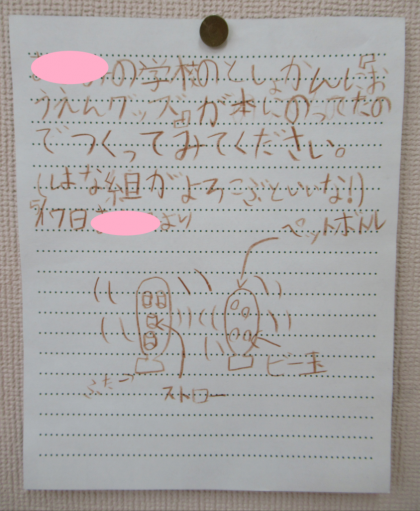 の学校のとしょかんに『お
うえんグッズ』が本にのってたの
でつくってみてください。
(はな組がよろこぶといいな!)
より
ペットボトル
ビー玉
ふたー
ストロー